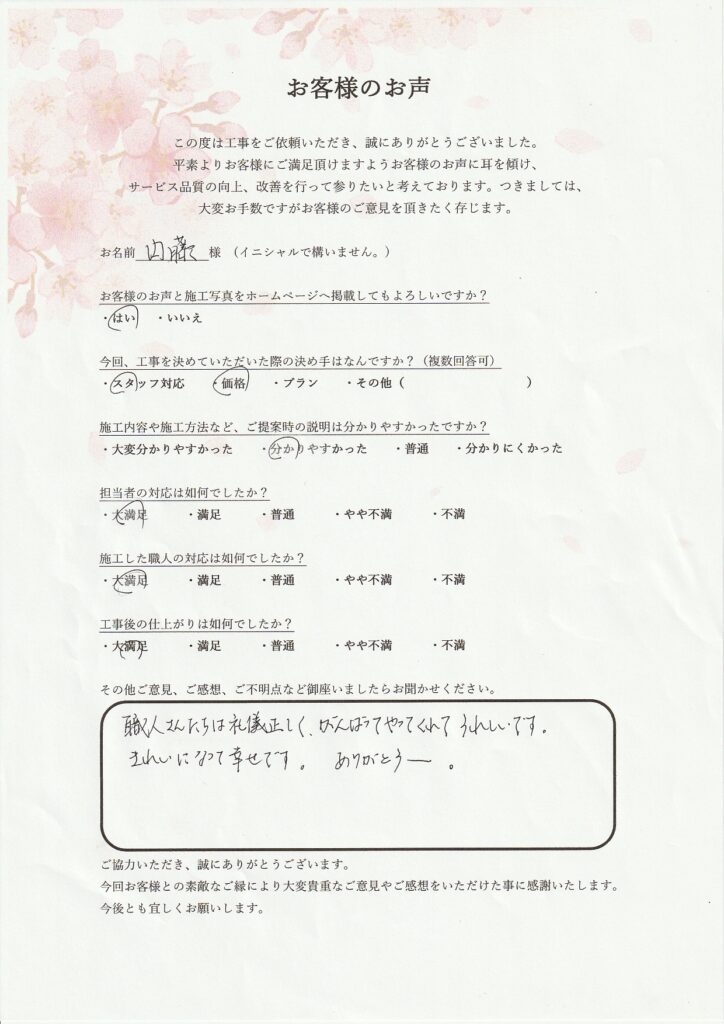 お客様のお声
この度は工事をご依頼いただき、誠にありがとうございました。
平素よりお客様にご満足頂けますようお客様のお声に耳を傾け、
サービス品質の向上、改善を行って参りたいと考えております。つきましては、
大変お手数ですがお客様のご意見を頂きたく存じます。
お名前 内藤 様 （イニシャルで構いません。）
お客様のお声と施工写真をホームページへ掲載してもよろしいですか？
・はい ・いいえ
今回、工事を決めていただいた際の決め手はなんですか？（複数回答可）
・スタッフ対応 ・価格 ・プラン ・その他（ ）
施工内容や施工方法など、ご提案時の説明は分かりやすかったですか？
・大変分かりやすかった ・分かりやすかった ・普通 ・分かりにくかった
担当者の対応は如何でしたか？
・大満足 ・満足 ・普通 ・やや不満 ・不満
施工した職人の対応は如何でしたか？
・大満足 ・満足 ・普通 ・やや不満 ・不満
工事後の仕上がりは如何でしたか？
・大満足 ・満足 ・普通 ・やや不満 ・不満
その他ご意見、ご感想、ご不明点など御座いましたらお聞かせください。
職人さんたちは礼儀正しく、がんばってやってくれてうれしいです。
きれいになって幸せです。 ありがとうー。
ご協力いただき、誠にありがとうございます。
今回お客様との素敵なご縁により大変貴重なご意見やご感想をいただけた事に感謝いたします。
今後とも宜しくお願いします。